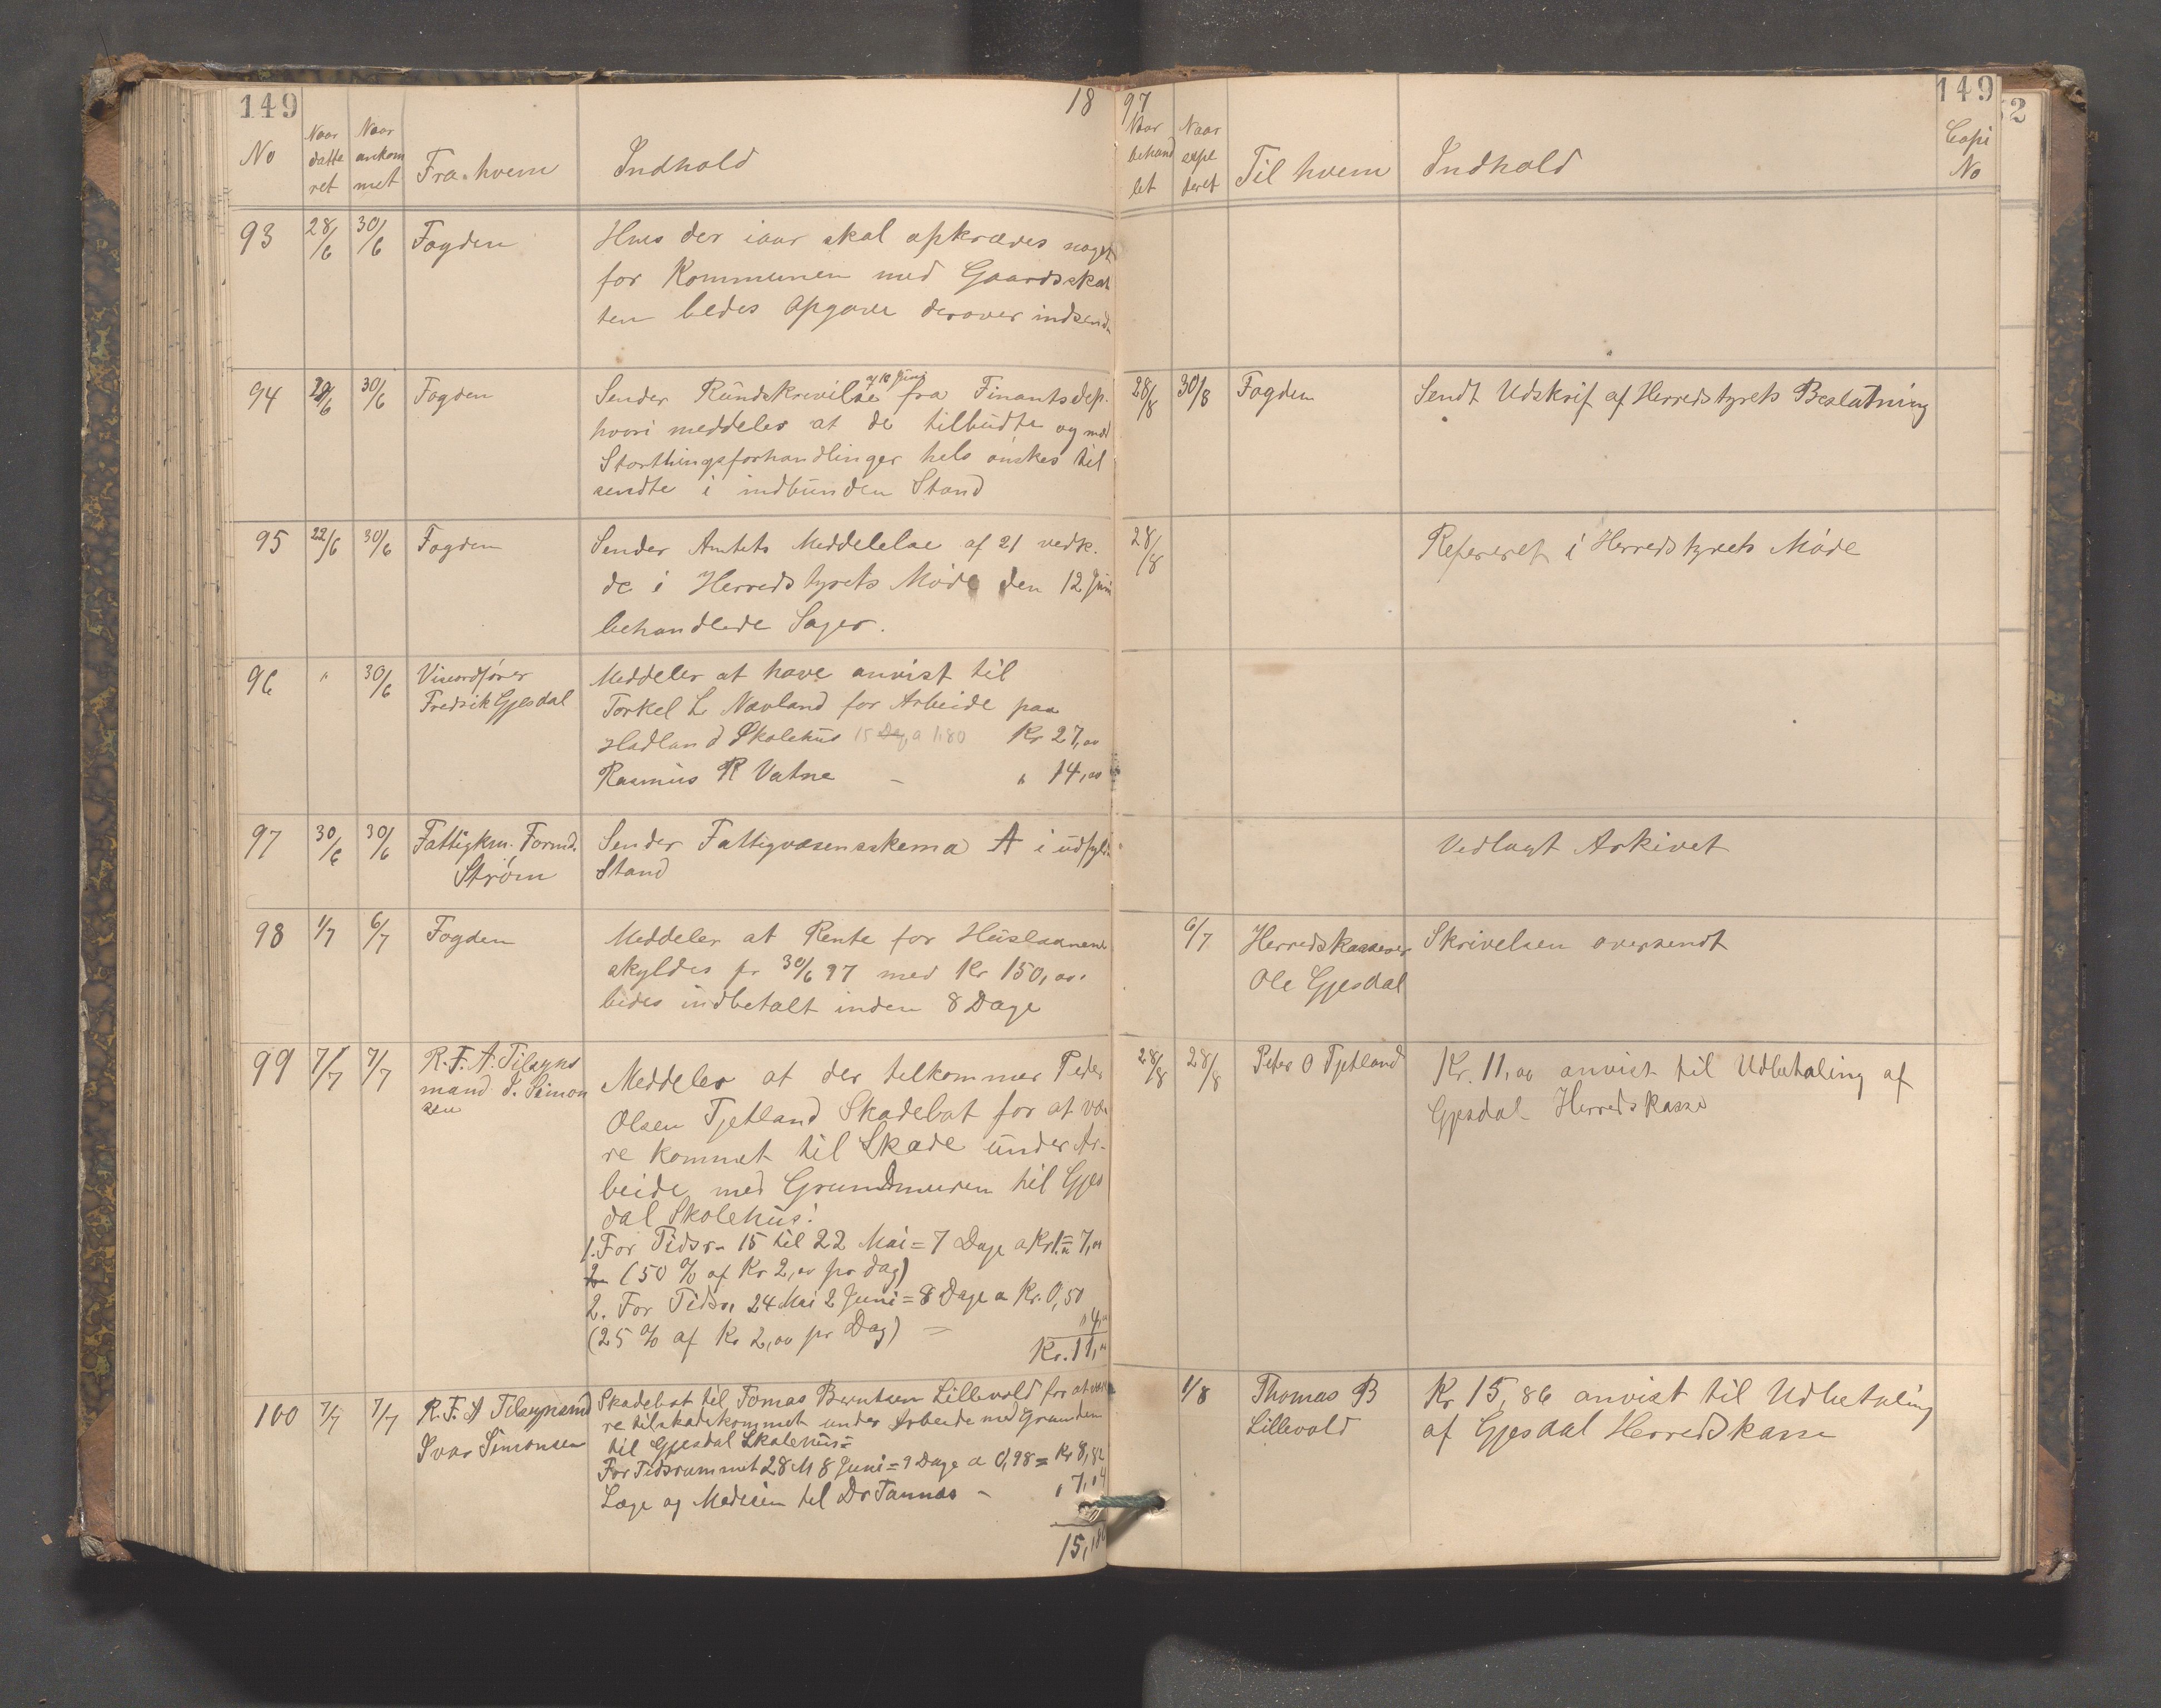 149
18
No
Naar datteret
Naar ankommet
Fra hvem
Indhold
93
28/6
30/6
Fogden
Hvis der iaar skal opkræves noget
for Kommunen med Gaardsskat
ten bedes Opgave derover indsendt
94
30/6
Fogden
Sender Rundskrivelse af 18 Juni fra Finantsdep.
hvori meddeles at de tilbudte og
Storthingsforhandlinger hels ønskes til
sendte i indbunden Stand
95
22/6
30/6
Fogden
Sender Amtets Meddelelse af 21 vedk.
de i Herredstyrets Møde den 12 Juni
behandlede Sager.
96
"
30/6
Viseordfører
Fredrik Gjesdal
Meddeler at have anvist til
Torkel L. Navland for Arbeide paa
Hadland Skolehus 15 Dag a 1.80 Kr 27,00
Rasmus R Vatne - " 14,00
97
30/6
30/6
Fattigkm. Formd.
Strøm
Sender Fattigvæsensskema A i udfyldt
Stand
98
1/7
6/7
Fogden
Meddeler at Rente for Huslaanene
skyldes pr 30/6 97 med Kr 150,00.
bedes indbetalt inden 8 Dage
99
7/7
7/7
R.F.A. Tilsyns
mand S. Simon
sen
Meddeler at der tilkommer Peder
Olsen Tjetland Skadebot for at væ
re kommet til Skade under Ar-
beide med Grundmuren til Gjes
dal Skolehus:
1. For Tidsr. 15 til 22 Mai = 7 Dage a Kr 1 = 7,00
(50 % af Kr 2,00 pr dag)
2. For Tidsr. 24 Mai 2 Juni = 8 Dage a Kr. 0,50
" 4,00
(25 % af Kr 2,00 pr Dag) -
Kr. 11,00
100
7/7
7/7
R.F.A Tilsynsmd
Ivar Simonsen
Skadebot til Tomas Berntsen Lillevold for at væ
re tilskadekommet under Arbeide med Grunden
til Gjesdal Skolehus =
For Tidsrummet 28 M 8 Juni = 9 Dage a 0,98 = Kr 8,82
Læge og Medisin til Dr Tannæs - " 7,04
15,86
97
149
Naar behandlet
Naar expederet
Til hvem
Indhold
Copi No
28/8
30/8
Fogden
Sendt Udskrif af Herredstyrets Beslutning
28/8
Refereret i Herredstyrets Møde
Vedlagt Arkivet
6/7
Herredskasserer
Ole Gjesdal
Skrivelsen oversendt
28/8
28/8
Peter O Tjetland
Kr. 11,00 anvist til Udbetaling af
Gjesdal Herredskasse
1/8
Thomas B
Lillevold
Kr 15,86 anvist til Udbetaling
af Gjesdal Herredskasse